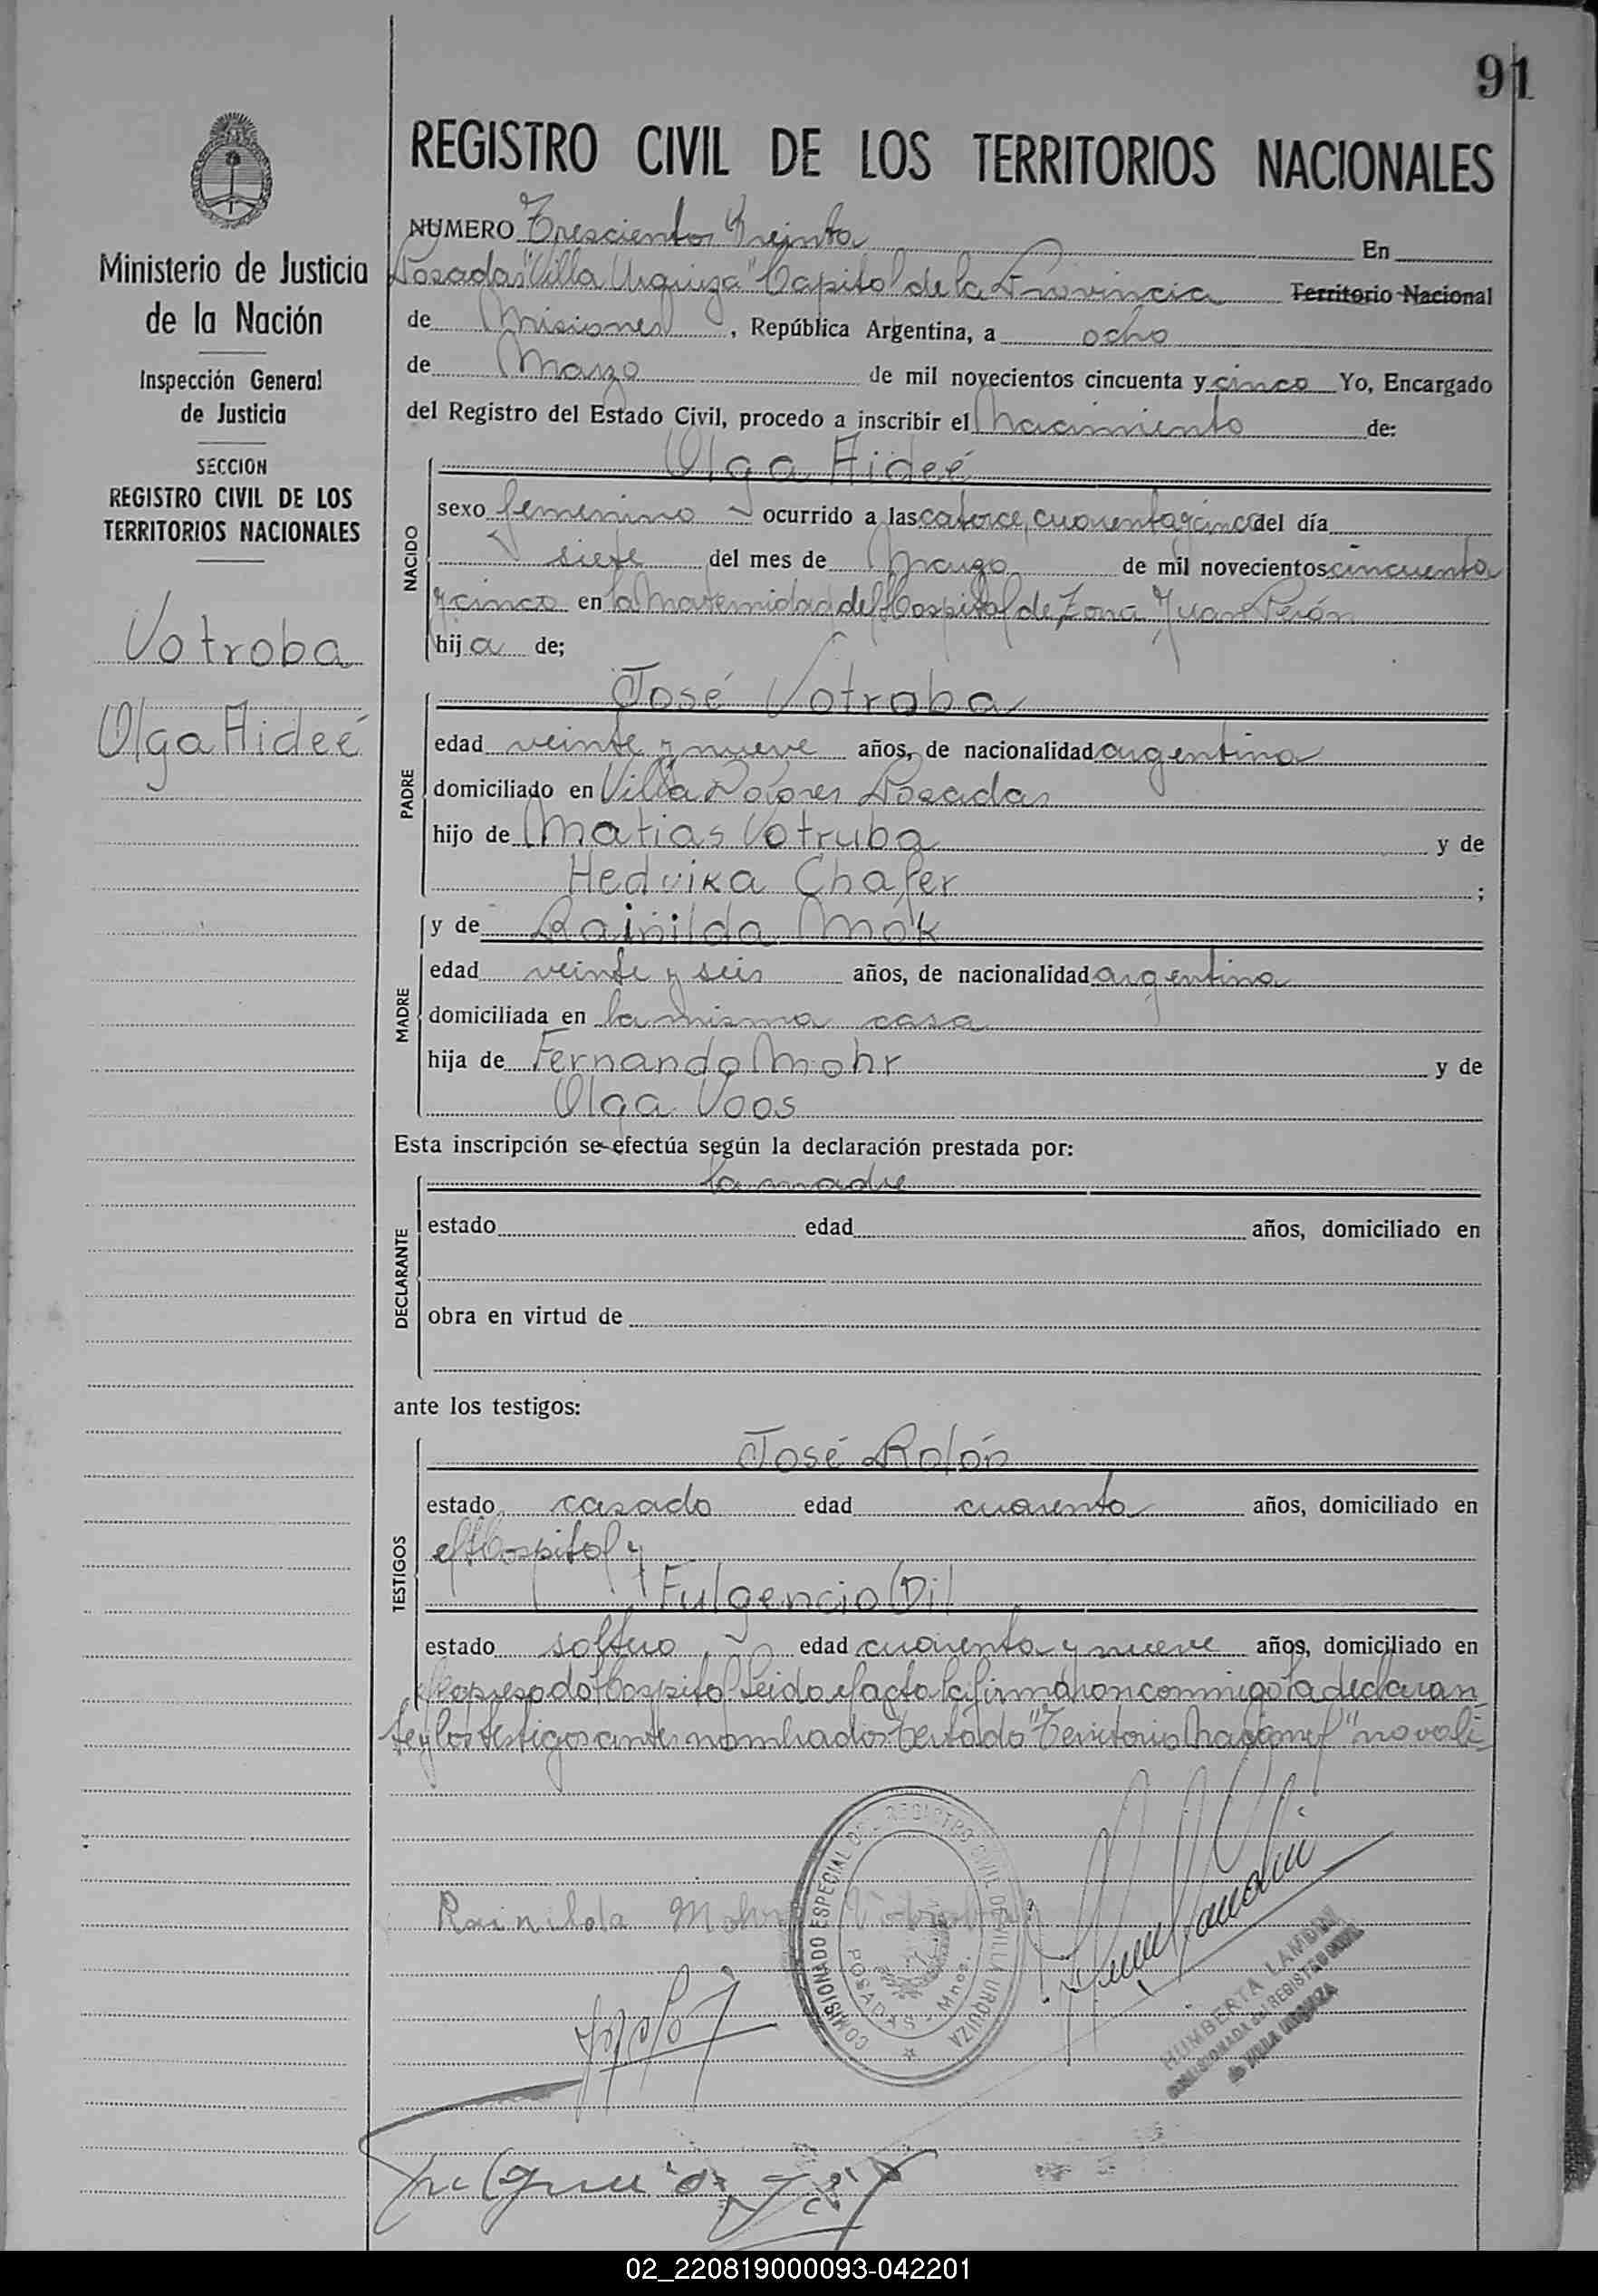 91
REGISTRO CIVIL DE LOS TERRITORIOS NACIONALES
Ministerio de Justicia
de la Nación
Inspección General
de Justicia
SECCION
REGISTRO CIVIL DE LOS
TERRITORIOS NACIONALES
Votroba
Olga Aideé
NUMERO Trescientos Treinta En
Posadas "Villa Urquiza" Capital de la Provincia Territorio Nacional
de Misiones, República Argentina, a ocho
de Marzo de mil novecientos cincuenta y cinco Yo, Encargado
del Registro del Estado Civil, procedo a inscribir el Nacimiento de:
NACIDO
Olga Aideé
sexo femenino ocurrido a las catorce, cuarenta y cinco del día
siete del mes de Marzo de mil novecientos cincuenta
y cinco en la Maternidad del Hospital de Zona Juan Perón
hija de;
PADRE
José Votroba
edad veinte y nueve años, de nacionalidad argentina
domiciliado en Villa Dolores Posadas
hijo de Matias Votruba y de
Hedvika Chafer ;
y de Rainilda Mök
MADRE
edad veinte y seis años, de nacionalidad argentina
domiciliada en la misma casa
hija de Fernando Mohr y de
Olga Voos
Esta inscripción se efectúa según la declaración prestada por:
DECLARANTE
la madre
estado edad años, domiciliado en
obra en virtud de
ante los testigos:
TESTIGOS
José Rolón
estado casado edad cuarenta años, domiciliado en
el Hospital y
Fulgencio Dil
estado soltero edad cuarenta y nueve años, domiciliado en
el expresado Hospital Leido el acta la firmaron conmigo la declaran
te y los testigos antes nombrados Testado "Territorio Nacional" no vale
Rainilda Mohr
COMISIONADO ESPECIAL DEL REGISTRO CIVIL DE VILLA URQUIZA
POSADAS Mnes.
HUMBERTA LAMDIN
COMISIONADA del REGISTRO CIVIL
de VILLA URQUIZA
02_220819000093-042201